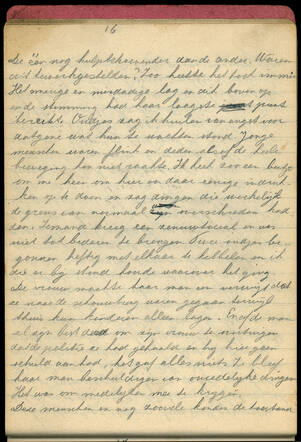 16
De een nog hulpbehoevender dan de ander. Waren
dit tewerkgestelden? Zoo heette het toch immers
Het meerige en misdadige lag er dik boven op
en de stemming had haar laagste punt
bereikt. Oudjes zag ik huilen van angst voor
datgene wat hun te wachten stond. Jonge
menschen waren flink en deden alsof de heele
beweging hen niet raakte. Ik heb zoo een beetje
om me heen om hier en daar eenige indruk-
ken op te doen en zag dingen die werkelijk
de grens van normaal overschreden had
den. Iemand kreeg een zenuwtoeval en was
niet tot bedaren te brengen. Twee vrouwen be-
gonnen heftig met elkaar te kibbelen en ik
die er bij stond hoorde waarover het ging
De vrouw maakte haar man een verwijt dat
ze naar de schouwburg waren gegaan terwijl
thuis hun kinderen alleen lagen. En of de man
al zijn best deed om zijn vrouw te overtuigen
dat de politie ze had gehaald en hij hier geen
schuld aan had, het gaf alles niets. Ze bleef
haar man beschuldigen van onredelijke dingen
Het was om medelijden mee te krijgen.
Deze menschen en nog zoovele konden de toestand